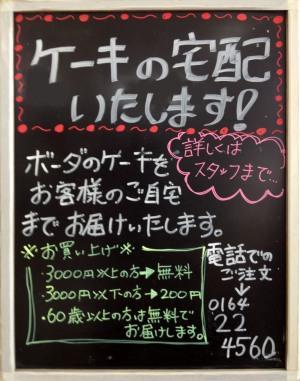 ケーキの宅配
いたします!
詳しくは
スタッフまで…
ボーダのケーキを
お客様のご自宅
までお届けいたします。
※お買い上げ※
・3000円以上の方→無料
・3000円以下の方→200円
・60歳以上の方は無料で
お届けします。
電話での
ご注文
↓
0164
22
4560